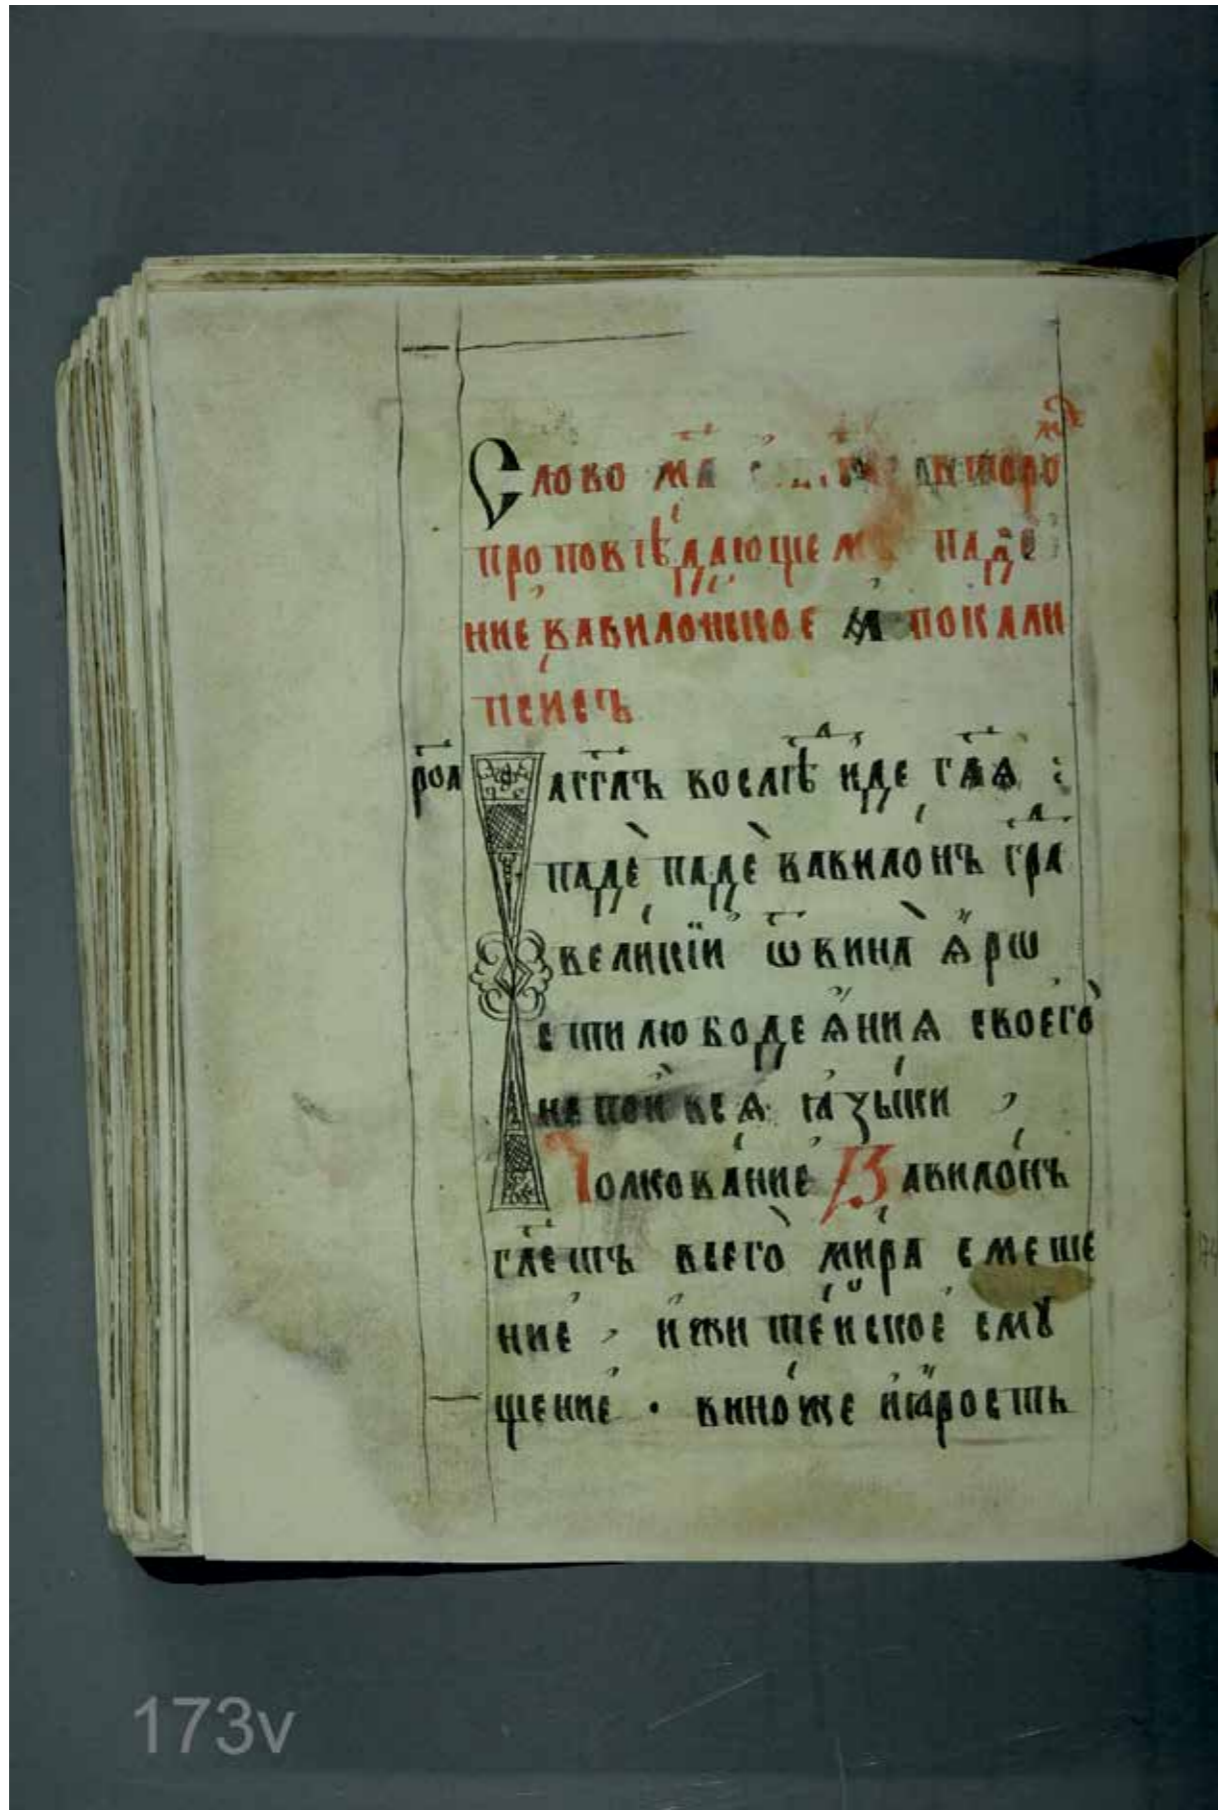 Слово м҃а
проповѣдающем паде
ние вавилонское апокали
псисъ
ро҃а
И аг҃глъ в̾слѣⷣ иде гл҃ѧ :
падѐ падѐ вавило́нъ граⷣ
вели́кїи ѿ вина̀ ѧ҆рѡ
сти любодеѧ҆ниѧ своего̀
напои всѧ ꙗзы́ки ,
Толкова́ние Вавило́нъ
гл҃етъ всего̀ ми́ра смеше
ние , и жите́йское смꙋ
щение · вино́же и ꙗрость
173v